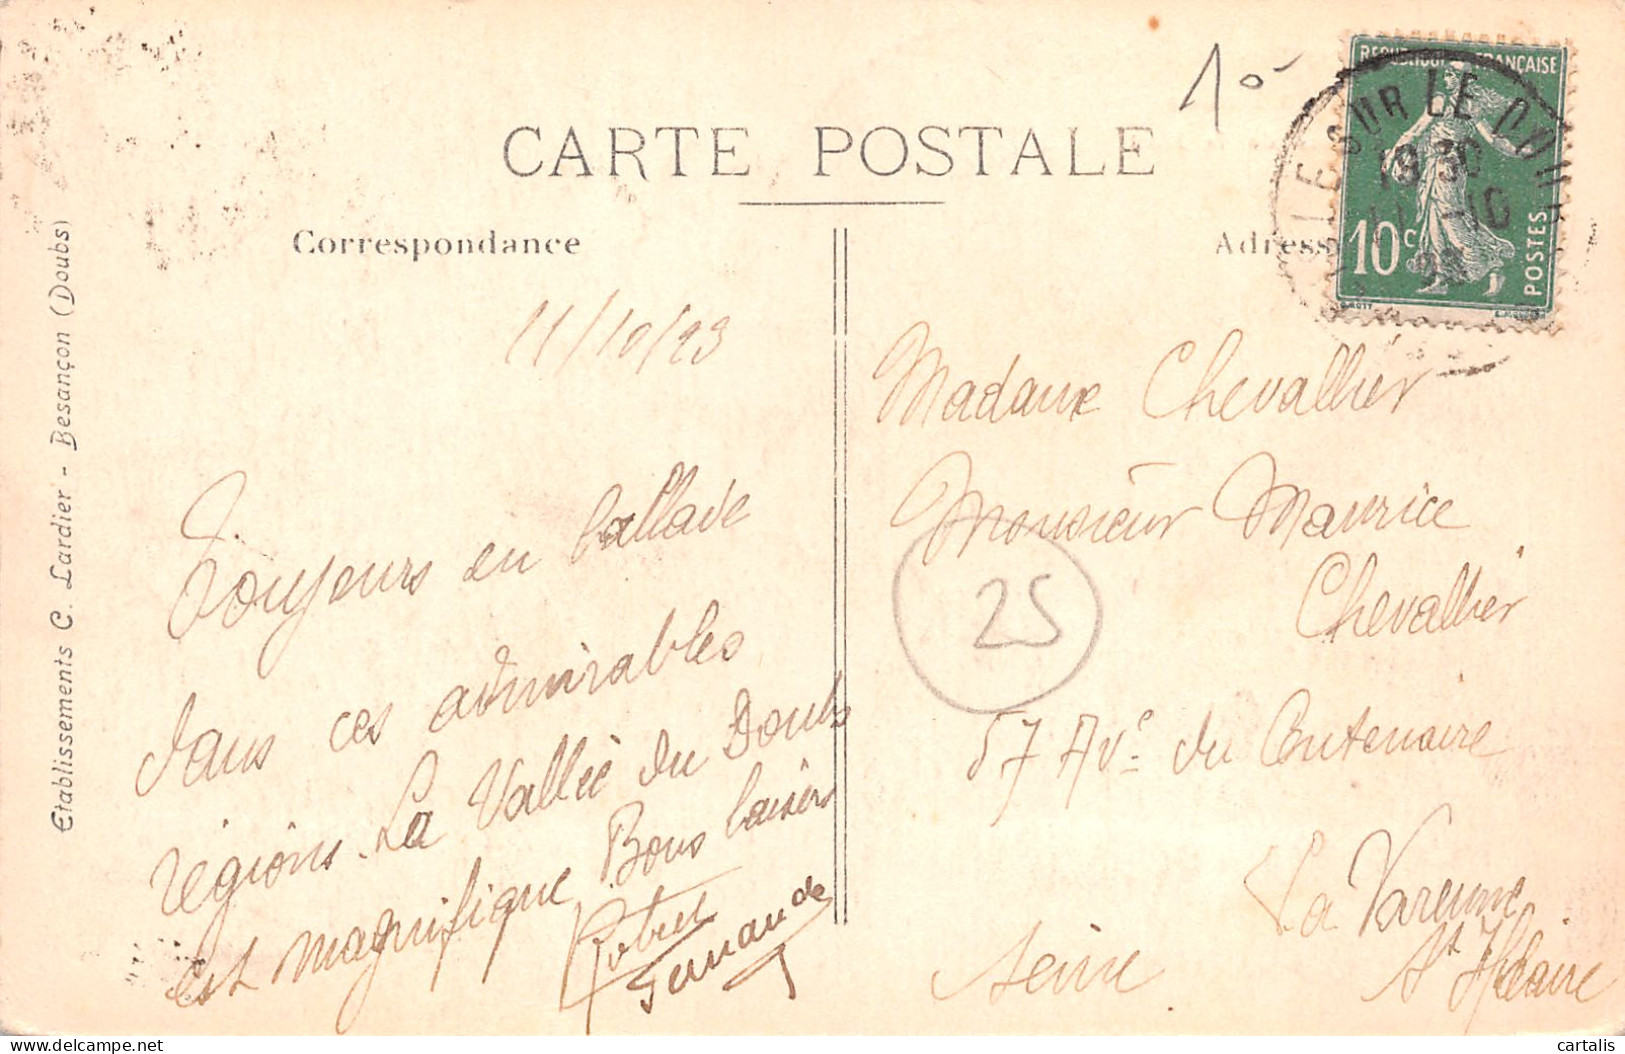 CARTE POSTALE
Correspondance
Adresse
10-
REPUBLIQUE FRANÇAISE
10c
POSTES
LE SUR LE DOUBS
19 30
11 -10
Etablissements C. Lardier - Besançon (Doubs)
11/10/23
Toujours en ballade
dans ces admirables
régions. La Vallée du Doubs
est magnifique Bons baisers
Fernande
Madame Chevallier
Monsieur Maurice
Chevallier
25
57 Ave du Centenaire
La Varenne
St Hilaire
Seine
cartalis
delcampe.net